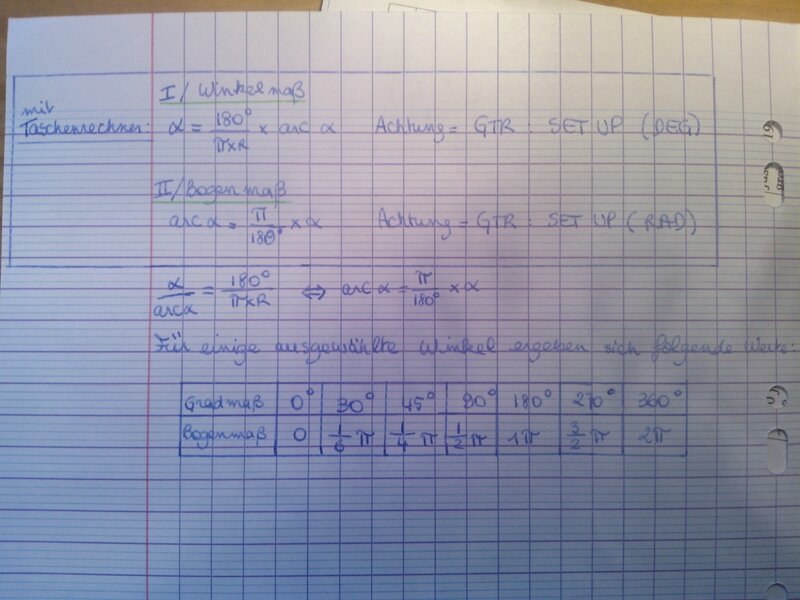 I/ Winkelmaß
mit
Taschenrechner: α = 180°/(π×R) × arc α Achtung = GTR : SET UP (DEG)
II/ Bogenmaß
arc α = π/180° × α Achtung = GTR : SET UP (RAD)
α/arc α = 180°/(π×R) ⇔ arc α = π/180° × α
Für einige ausgewählte Winkel ergeben sich folgende Werte:
Gradmaß 0° 30° 45° 90° 180° 270° 360°
Bogenmaß 0 1/6 π 1/4 π 1/2 π 1π 3/2 π 2π